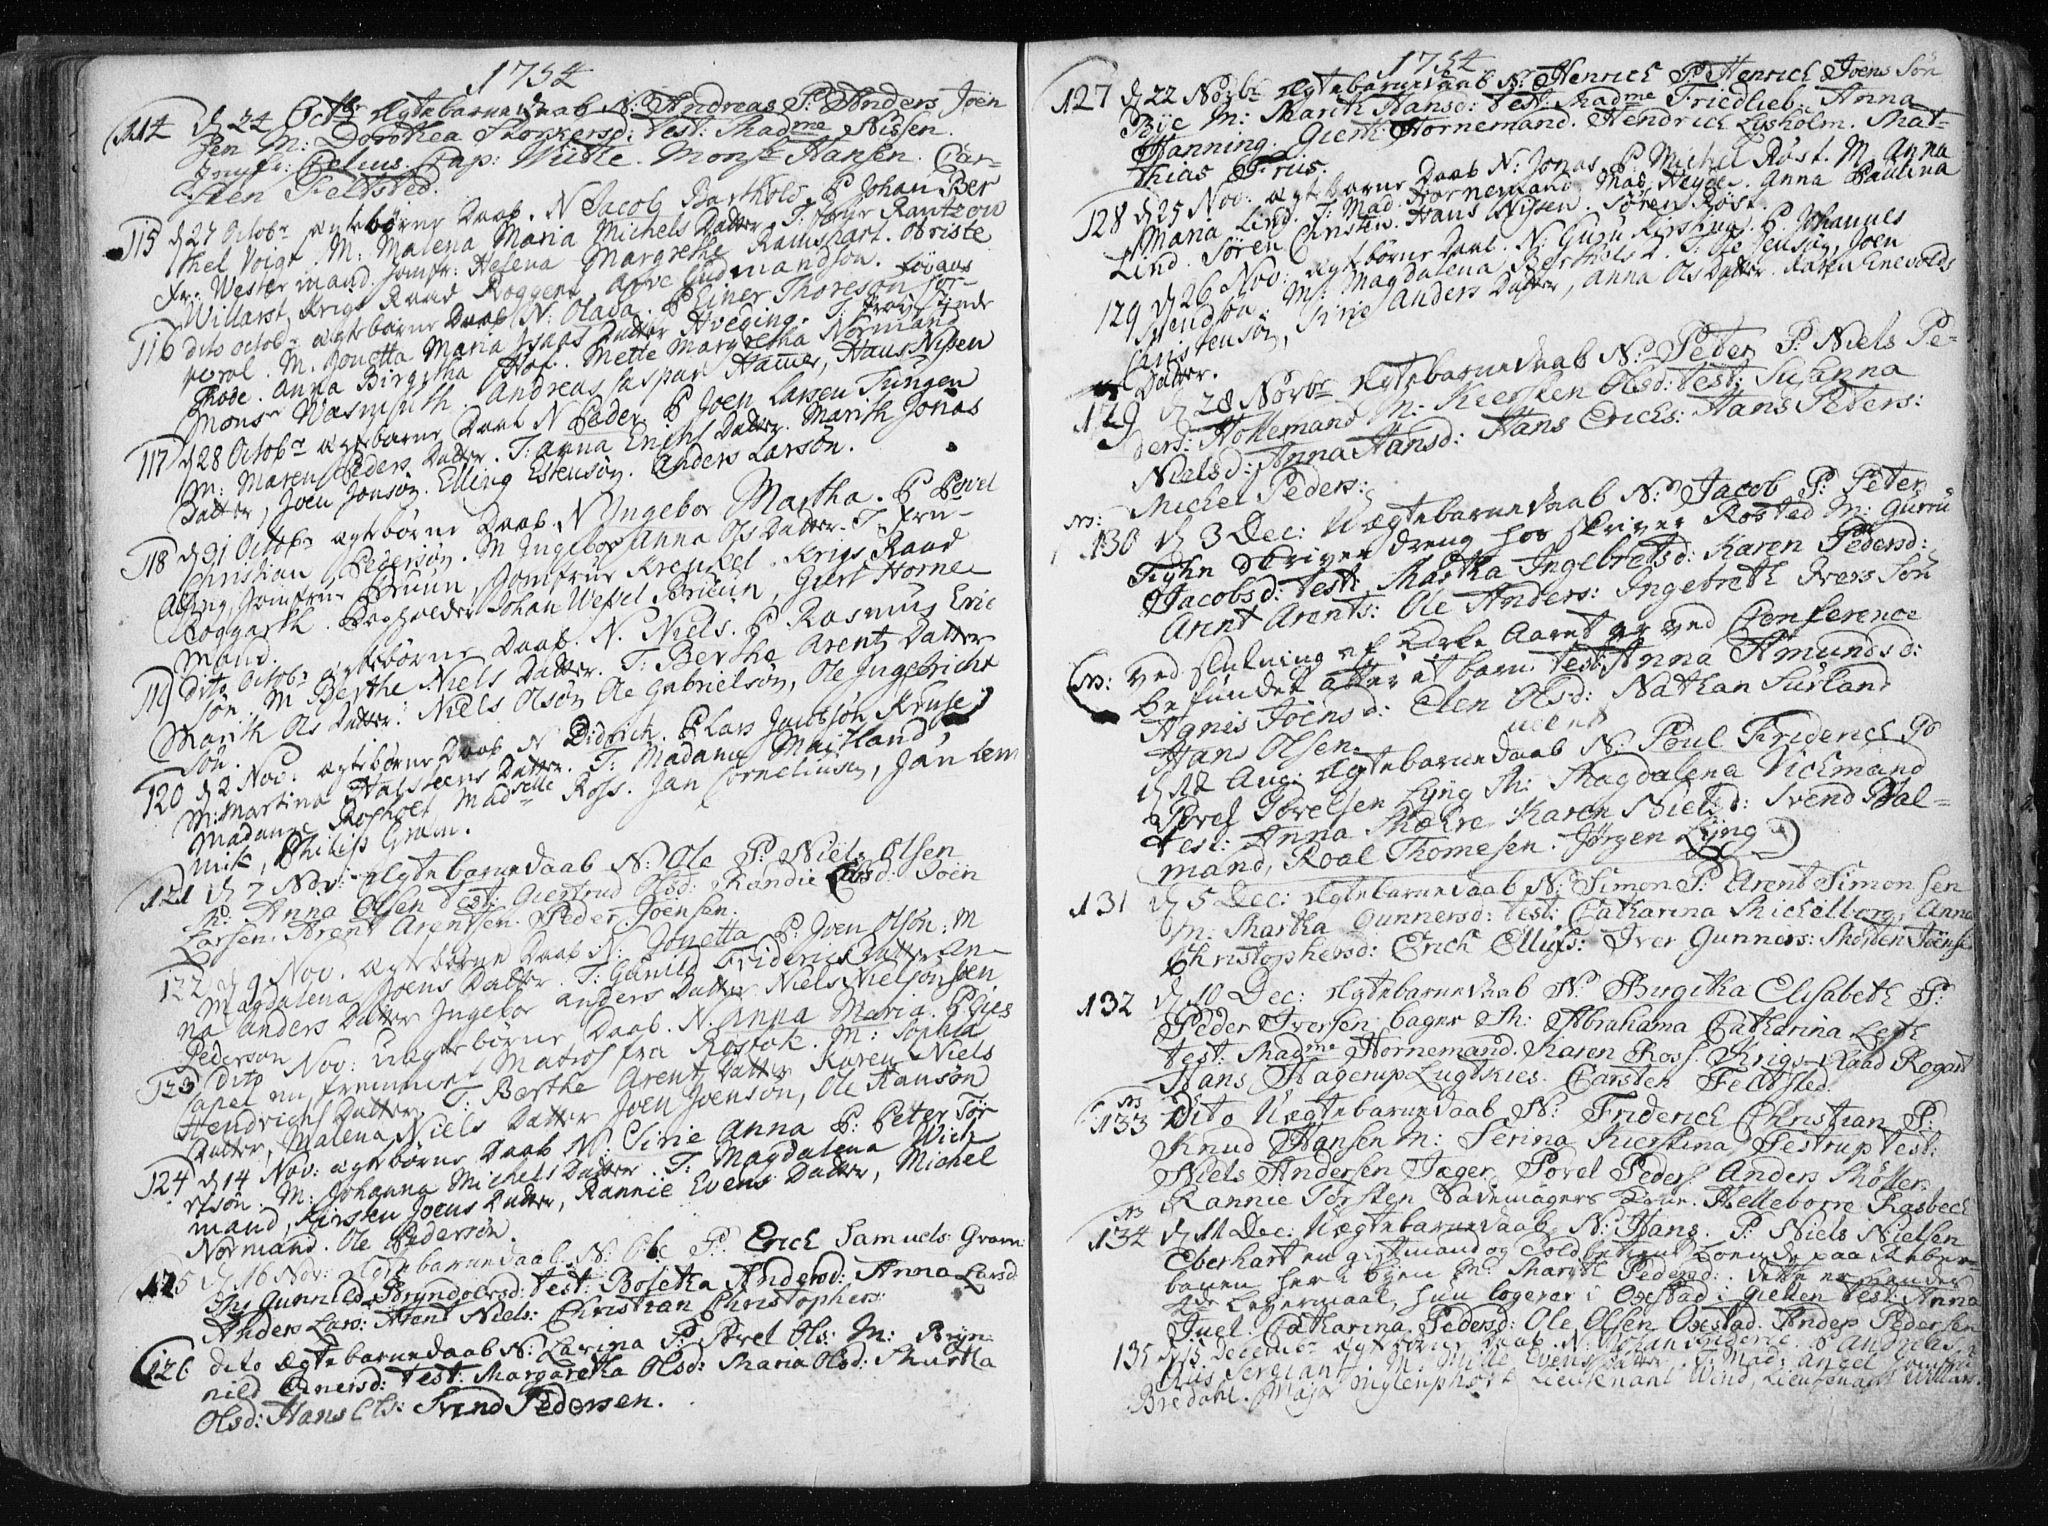 1754
114 d 24 Octbr Ægtebarnedaab N: Andreas P: Anders Joen
sen M: Dorothea Thorkersd: Test: Madme Nissen.
Jomfr: Cap: Withe. Monsr Hansen. Car-
sten Feltsted.
115 d 27 Octobr ægtebørne Daab. N Jacob Barthold, P Johan Ber
thel Voigt. M: Malena Maria Michels Datter. T: Frue Rantzow
Fr: Westermand. Jomfr: Helena Margrethe Ramshart. Obriste
Willarst, Krigs Raad Roggert, Arve Gudmandsøn.
116 dito octobr ægtebørne Daab N: Olava. P Einer Thoresøn
M. Jonetta Maria Isaas Datter Hveding. T: Provstinde
Rhode. Anna Birgitha Hof. Mette Margretha Normand
Monsr Wasmuth. Andreas Caspar Hauer, Hans Nissen
117 d 28 Octobr ægtebørne Daab N Peder P Joen Larsen Tungen
M: Maren Peders Datter. T: Anna Erichs Datter. Marith Jonas
Datter, Joen Jonsøn. Elling Estensøn. Anders Larsøn.
118 d 31 Octobr ægtebørne Daab. N Ingebor Martha. P Povel
Christian Pedersøn. M Ingebor Anna Ols Datter. T: Fru-
Ading, Jomfrue Bruun, Jomfrue Krenkel. Krigs Raad
Roggarth. Bogholder Johan Wessel Bruun, Giert Horne
mand.
119 dito Octobr ægtebørne Daab. N. Niels. P Rasmus Eric
søn. M Berthe Niels Datter. T: Berthe Arentz Datter
Marith Ols Datter. Niels Olsøn, Ole Gabrielsøn, Ole Ingebricht
søn.
120 d 2 Nov: ægtebørne Daab N Didrich. P Lars Jacobsøn Kruse
M: Martina Halsteens Datter. T: Madame Maitland,
Madame Rosholt Madselle Ross. Jan Corneliusen, Jan Lem
mik, Philip Gram.
121 d 7 Nov: Ægtebarnedaab N: Ole P: Niels Olsen
M: Anna Olsen Test: Giertrud Olsd: Randie Larsd: Joen
Larsen. Arent Arentsen. Peder Joensen.
122 d 9 Nov. ægtebørne Daab N: Jonetta P: Joen Olsøn: M
Magdalena Joens Datter. T: Gunild Friderichs Datter An-
na Anders Datter Ingebor Anders Datter Niels Nielsøn Joen
Pedersøn
123 dito Nov: uægtebørne Daab. N. Anna Maria. P Gies
Capel en fremmet Matros fra Rostok. M: Sophia
Hendrichs Datter. T Berthe Arent Datter Karen Niels
Datter, Malena Niels Datter Joen Joensøn, Ole Hansøn
124 d 14 Nov: ægtebørne Daab N: Sirie Anna P: Peter Tør
resøn. M: Johanna Michels Datter. T: Magdalena Wich
mand, Kirsten Joens Datter, Rannie Evens Datter, Michel
Normand. Ole Pedersøn.
125 d 16 Nov: Ægtebarnedaab N: Ole P: Erich Samuels: Gravr:
M: Gunnild Bryndolvsd: Test: Bolethe Andersd: Anna Larsd
Anders Lars: Arent Niels: Christian Christophers:
126 dito Ægtebarnedaab N: Larina P: Povel Ols: M: Bryn
nild Einersd: Test: Margaretha Olsd: Maria Olsd: Martha
Olsd: Hans Ols: Svend Pedersen.
1754
127 d 22 Novbr Ægtebarnedaab N: Henrich P: Henrich Joens Søn
Bye M: Marith Hansd: Test: Madme Friedlieb. Anna
Hanning. Giert Hornemand. Hendrich Lysholm. Mat-
thias Friis.
128 d 25 Nov: ægtebørne Daab N: Jonas. P Michel Røst. M Anna
Maria Lind. T: Mad. Hornemand Mad Heyde. Anna Paulina
Lind. Søren Christen. Hans Nissen. Søren Røst.
129 d 26 Nov: ægtebørne Daab. N: Guru Kirstina. P. Johannes
Svendsøn. M: Magdalena Berthels D. T: Ole Jensøn, Joen
Christensøn, Sirie Anders Datter, Anna Ols Datter. Karen Enevolds
Datter.
129 d 28 Novbr Ægtebarnedaab N: Peder P: Niels Pe-
ders: Hollemand M: Keersten Olsd: Test: Susanna
Nielsd: Anna Hansd: Hans Erichs: Hans Peters:
Michel Peders:
NB:
130 d 3 Dec: Uægtebarnedaab N: Jacob P: Peter
Kyhn Skriver dreng hos Skriver Rostad M: Guru
Jacobsd: Test: Martha Ingebretsd: Karen Pedersd:
Arent Arents: Ole Anders: Ingebreth Ivers Søn
NB: Ved slutning af Kirke Aaret er ved Conference
befundet atter et barn Test: Anna Amundsd:
Agnis Joensd: Elen Olsd: Nathan Surland
Hans Olsen.
d 12 Aug: Ægtebarnedaab N: Poul Friderich P
Povel Povelsen Lyng M: Magdalena Vichmand
Test: Anna Mære Karen Nielsd: Svend Bal-
mand, Roal Thomesen. Jørgen Lyng
131 d 5 Dec: Ægtebarnedaab N: Simon P: Arent Simonsen
M: Martha Gunnersd: Test: Catharina Mickelborg. Anna
Christophersd: Erich Ellifs: Iver Gunners: Morten Joense
132 d 10 Dec: Ægtebarnedaab N: Birgitha Elisabeth P:
Peder Iversen bager M: Abrahama Catharina Leth
Test: Madme Hornemand. Karen Ross. Krigs-Raad Rogart
Hans Hagerup Lugtkies. Carsten Feldtsted.
NB
133 Dito Uægtebarnedaab N: Friderich Christian P:
Knud Hansen M: Serina Kierstina Sestrup Test:
Niels Andersen Jæger. Povel Peders Anders Møller.
Rannie Torsten Sademagers Kone. Helleborre Rasbech
NB
134 d 11 Dec: Uægtebarnedaab N: Hans. P: Niels Nielsen
Eberhart en gift mand og Soldbetient boende paa Reber-
banen her i byen M: Margth Pedersd: dette er hendes
2de Leyermaal, hun logerer i Oxestad i gielten Test: Anna
Juel. Catharina Pedersd: Ole Olsen Oxestad. Anders Pedersen
135 d 15 Decembr ægtebørne Daab. N: Johan Frideric. P Andreas
Sergiant. M: Mille Evens Datter. T: Mad: Angel Jomfrue
Bredahl. Major Mylenphort Lieutenant Wind, Lieutenant Willars